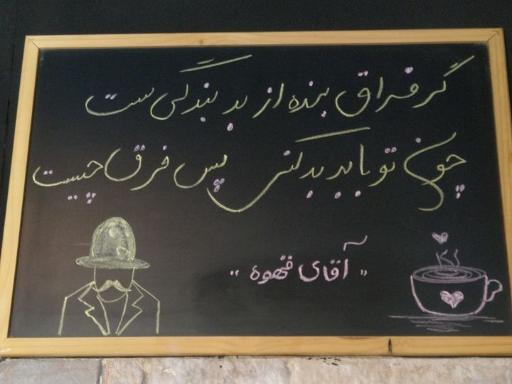 گر فراق بنده از بد بندگی ست
چون تو با بد بد کنی پس فرق چیست
"آقای قهوه"